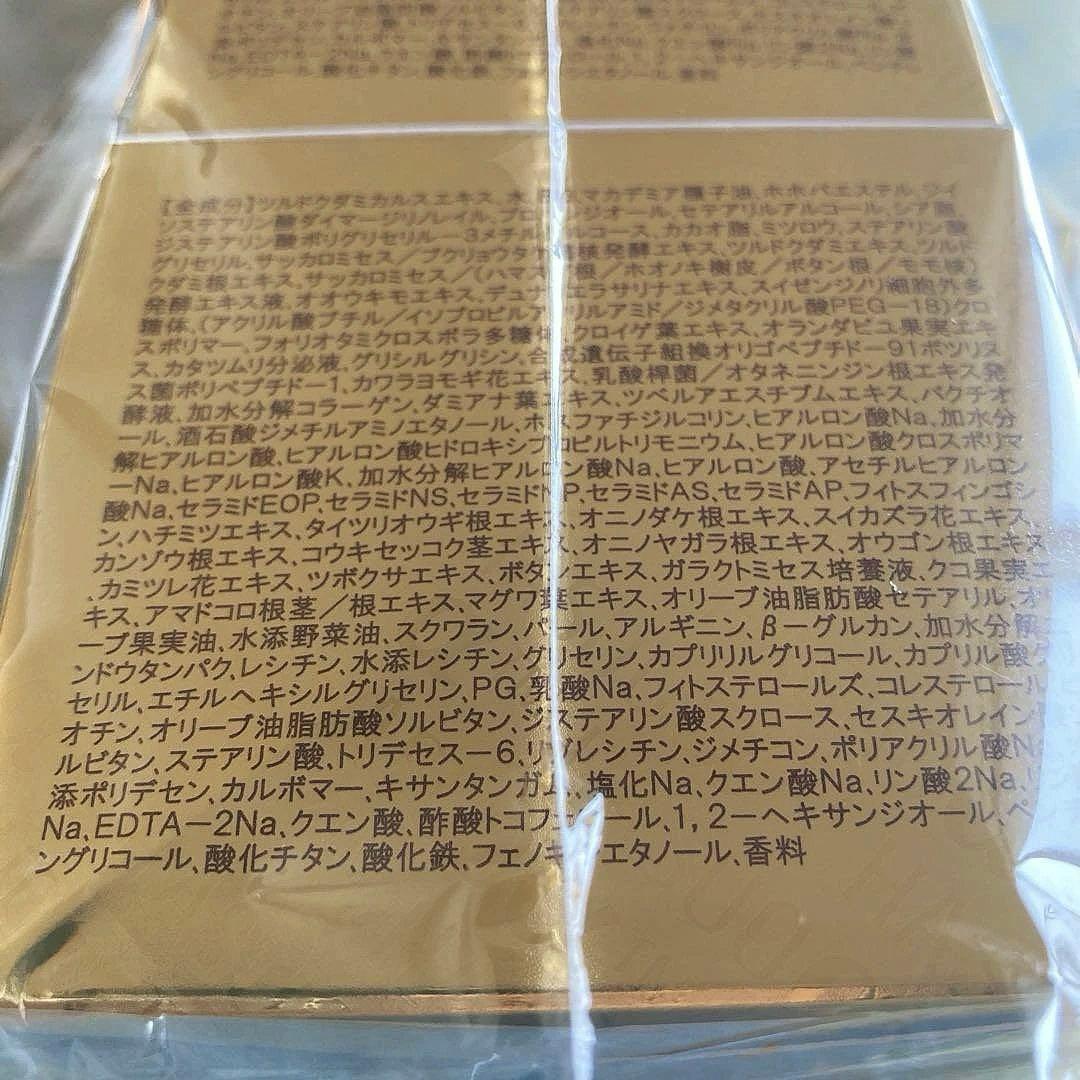 【全成分】ツルドクダミカルスエキス、水 マカデミア種子油、ホホバエステル、ツイ
ンステアリン酸ダイマージリノレイル、プロ ンジオール、セテアリルアルコール、シア脂、
ジステアリン酸ポリグリセリル-3メチル ルコース、カカオ脂、ミツロウ、ステアリン酸
グリセリル、サッカロミセス/ブクリョウタケ 核発酵エキス、ツルドクダミエキス、ツルド
クダミ根エキス、サッカロミセス/(ハマス 根/ホオノキ樹皮/ボタン根/モモ核)
発酵エキス液、オオウキモエキス、デュ エラサリナエキス、スイゼンジノリ細胞外多
糖体、(アクリル酸ブチル/イソプロピルアクリルアミド/ジメタクリル酸PEG-18)クロ
スポリマー、フォリオタミクロスポラ多糖体、クロイゲ葉エキス、オランダビユ果実エキ
ス、カタツムリ分泌液、グリシルグリシン、合成遺伝子組換オリゴペプチド-91ボツリヌ
ス菌ポリペプチド-1、カワラヨモギ花エキス、乳酸桿菌/オタネニンジン根エキス発
酵液、加水分解コラーゲン、ダミアナ葉エキス、ツベルアエスチブムエキス、バクチオ
ール、酒石酸ジメチルアミノエタノール、ホスファチジルコリン、ヒアルロン酸Na、加水分
解ヒアルロン酸、ヒアルロン酸ヒドロキシプロピルトリモニウム、ヒアルロン酸クロスポリマ
ーNa、ヒアルロン酸K、加水分解ヒアルロン酸Na、ヒアルロン酸、アセチルヒアルロン
酸Na、セラミドEOP、セラミドNS、セラミドNP、セラミドAS、セラミドAP、フィトスフィンゴシ
ン、ハチミツエキス、タイツリオウギ根エキス、オニノダケ根エキス、スイカズラ花エキス、
カンゾウ根エキス、コウキセッコク茎エキス、オニノヤガラ根エキス、オウゴン根エキス
、カミツレ花エキス、ツボクサエキス、ボタンエキス、ガラクトミセス培養液、クコ果実エ
キス、アマドコロ根茎/根エキス、マグワ葉エキス、オリーブ油脂肪酸セテアリル、オリ
ーブ果実油、水添野菜油、スクワラン、パール、アルギニン、β-グルカン、加水分解
ンドウタンパク、レシチン、水添レシチン、グリセリン、カプリリルグリコール、カプリル酸グ
セリル、エチルヘキシルグリセリン、PG、乳酸Na、フィトステロールズ、コレステロール
オチン、オリーブ油脂肪酸ソルビタン、ジステアリン酸スクロース、セスキオレイン
ルビタン、ステアリン酸、トリデセス-6、リゾレシチン、ジメチコン、ポリアクリル酸Na
添ポリデセン、カルボマー、キサンタンガム、塩化Na、クエン酸Na、リン酸2Na、
Na、EDTA-2Na、クエン酸、酢酸トコフェロール、1,2-ヘキサンジオール、ペ
ングリコール、酸化チタン、酸化鉄、フェノキシエタノール、香料